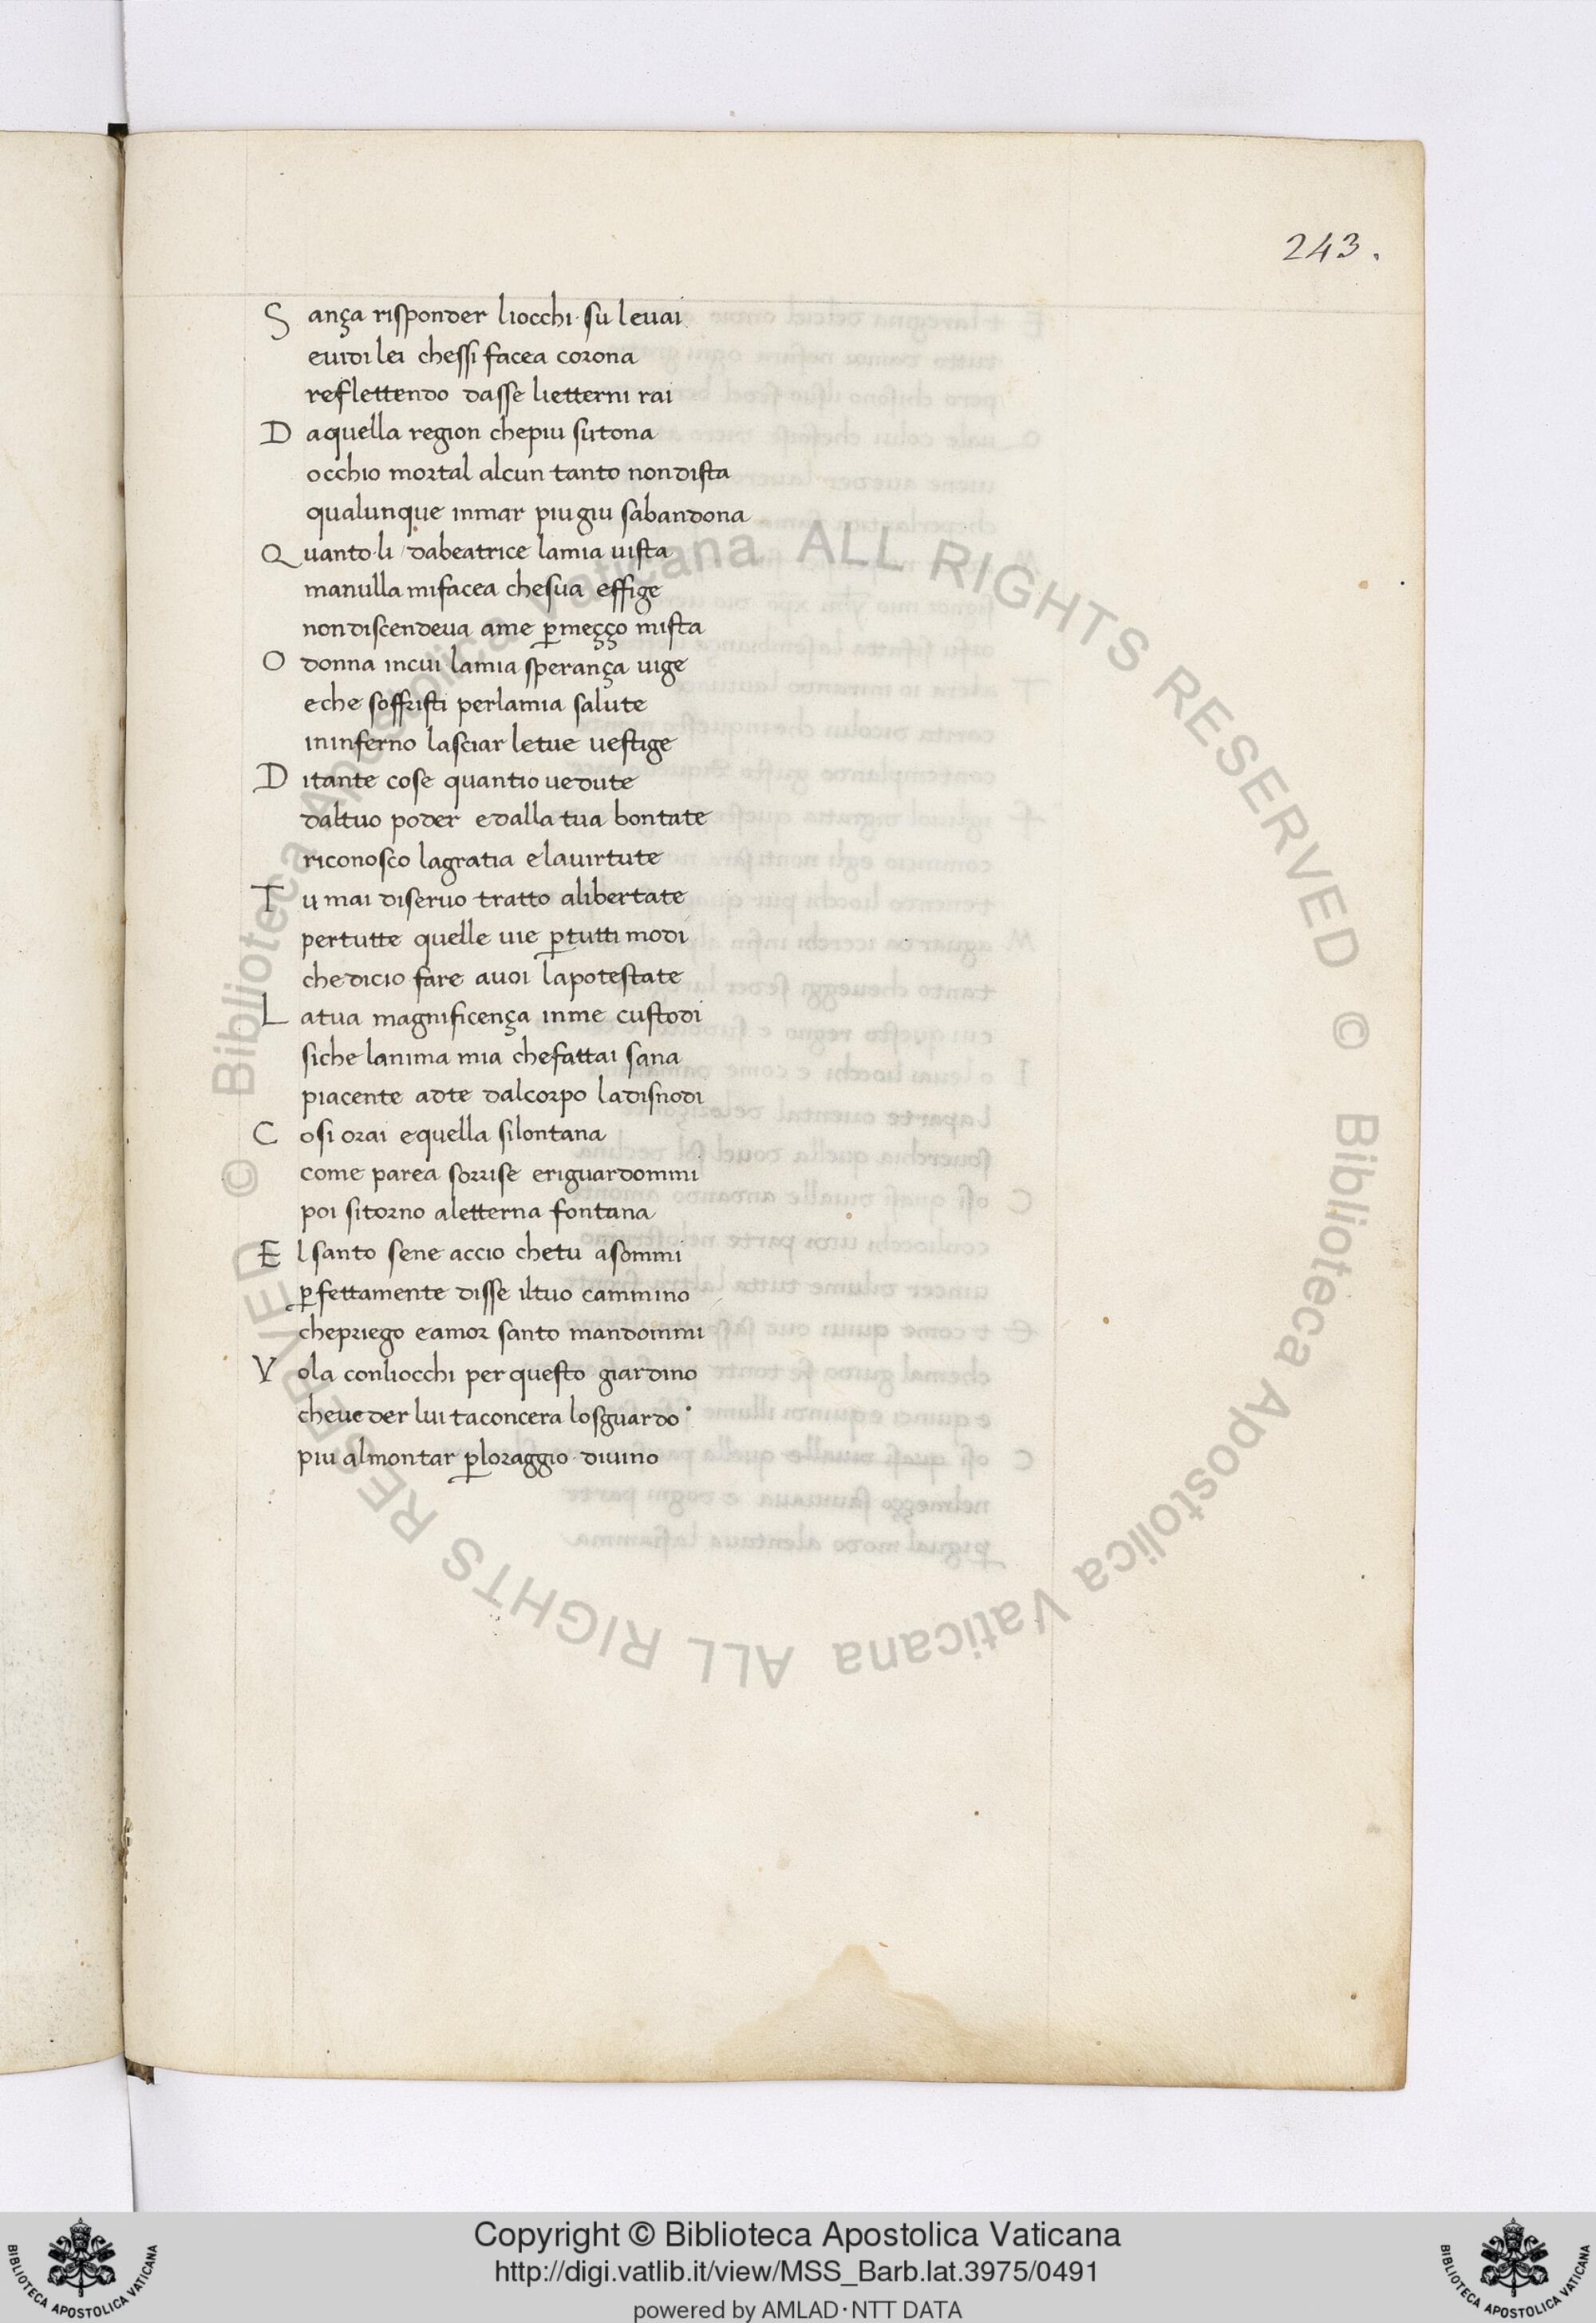 243.
S ança risponder liocchi su leuai
euidi lei chessi facea corona
reflettendo dasse lietterni rai
D aquella region chepiu sutona
occhio mortal alcun tanto nondista
qualunque inmar piugiu sabandona
Q uanto li dabeatrice lamia uista
manulla mifacea chesua effige
nondiscendeua ame ꝑmeçço mista
O donna incui lamia sperança uige
eche soffristi perlamia salute
ininferno lasciar letue uestige
D itante cose quantio uedute
daltuo poder edalla tua bontate
riconosco lagratia elauirtute
T u mai diseruo tratto alibertate
pertutte quelle uie ꝑtutti modi
chedicio fare auoi lapotestate
L atua magnificença inme custodi
siche lanima mia chefattai sana
piacente adte dalcorpo ladisnodi
C osi orai equella silontana
come parea sorrise eriguardommi
poi sitorno aletterna fontana
E lsanto sene accio chetu asommi
ꝑfettamente disse iltuo cammino
chepriego eamor santo mandommi
V ola conliocchi per questo giardino
cheueder lui taconcera losguardo
piu almontar ꝑloraggio diuino
© Biblioteca Apostolica Vaticana ALL RIGHTS RESERVED © Biblioteca Apostolica Vaticana ALL RIGHTS RESERVED
Copyright © Biblioteca Apostolica Vaticana
http://digi.vatlib.it/view/MSS_Barb.lat.3975/0491
powered by AMLAD·NTT DATA
BIBLIOTECA APOSTOLICA VATICANA
BIBLIOTECA APOSTOLICA VATICANA